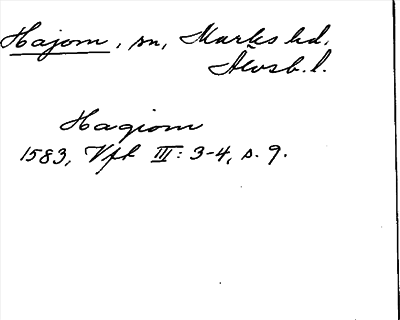 Hajom, sn, Marks hd,
Älvsb. l.
Hagiom
1583, Vfl III: 3-4, s. 9.